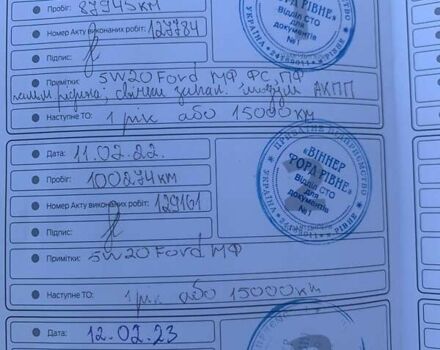 Пробіг: 87945 км
Номер Акту виконаних робіт: 127784
Підпис:
Примітки: 5W20 Ford МФ ФС, ПФ
АКПП
Наступне ТО: 1 рік або 15000 км
Дата: 11.02.22.
Пробіг: 100874 км
Номер Акту виконаних робіт: 129161
Підпис:
Примітки: 5W20 Ford МФ
Наступне ТО: 1 рік або 15000 км
Дата: 12.02.23
УКРАЇНА
Відділ СТО
для
документів
№1
ПРИВАТНЕ ПІДПРИЄМСТВО
«ВІННЕР
ФОРД РІВНЕ»
Відділ СТО
для
документів
№1
УКРАЇНА